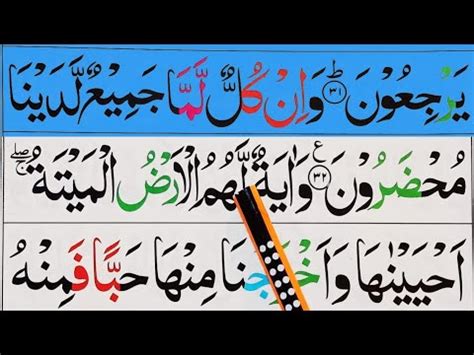 يَرْجِعُوْنَ ؕ۳۱ وَاِنْ كُلٌّ لَّمَّا جَمِيْعٌ لَّدَيْنَا
مُحْضَرُوْنَ ࣖ۳۲ وَاٰيَةٌ لَّهُمُ الْاَرْضُ الْمَيْتَةُ ۖۚ
اَحْيَيْنٰهَا وَاَخْرَجْنَا مِنْهَا حَبًّا فَمِنْهُ